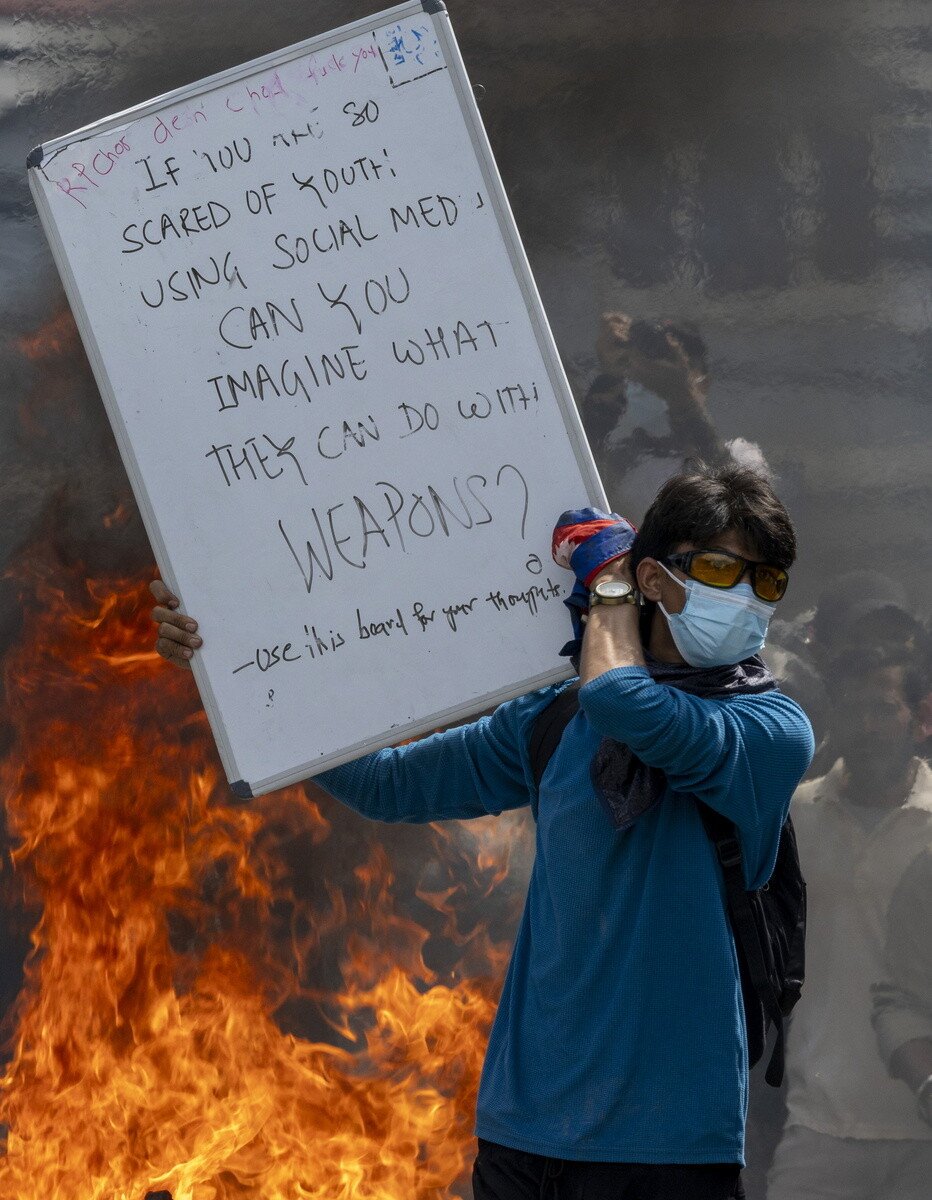 fuck you
IF YOU ARE SO
SCARED OF YOUTH
USING SOCIAL MEDI
CAN YOU
IMAGINE WHAT
THEY CAN DO WITH
WEAPONS?
- use this board for your thoughts.